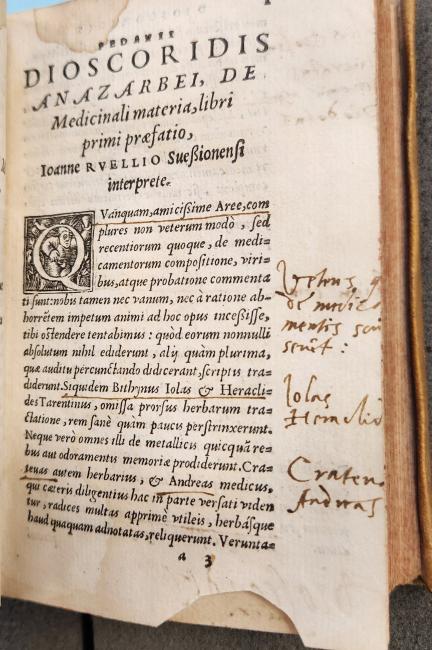 PEDANII
DIOSCORIDIS
ANAZARBEI, DE
Medicinali materia, libri
primi præfatio,
Ioanne RVELLIO Sueßionensi
interprete.
QVanquam, amicißime Aree, com
plures non veterum modò, sed
recentiorum quoque, de medi=
camentorum compositione, viri=
bus, atque probatione commenta
ti sunt: nobis tamen nec vanum, nec à ratione ab=
horrētem impetum animi ad hoc opus inceßisse,
tibi ostendere tentabimus: quòd eorum nonnulli
absolutum nihil ediderunt, alij quàm plurima,
quæ auditu percunctando didicerant, scriptis tra=
diderunt. Siquidem Bithynus Iolas & Heracli=
des Tarentinus, omissa prorsus herbarum tra=
ctatione, rem sanè quàm paucis perstrinxerunt.
Neque verò omnes illi de metallicis quicquā re=
bus aut odoramentis memoriæ prodiderunt. Cra=
teuas autem herbarius, & Andreas medicus,
qui cæteris diligentius hac in parte versati viden
tur, radices multas apprimè vtileis, herbásque
haud quaquam adnotatas, reliquerunt. Verunta=
a 3
de medica
mentis
Iolas
Crateu
Andreas